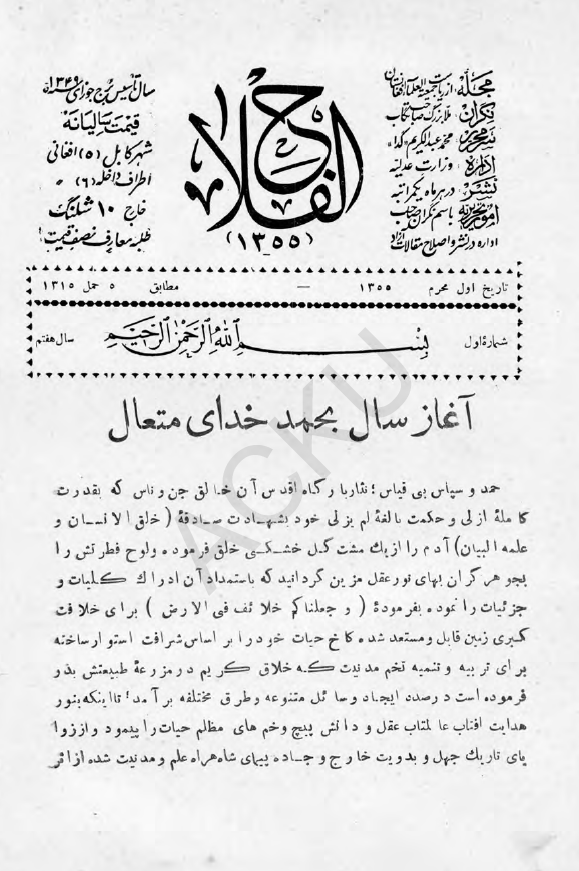 مجله از ریاست جمعیة العلماء افغانستان
نگران
سر محرر محمد عبدالکریم «گدا»
اداره وزارت عدلیه
نشر در هر ماه یکمراتبه
باسم نگران صاحب
اداره در نشر و اصلاح مقالات آزاد
حی الفلاح
(۱۳۵۵)
سال تأسیس برج جوزای سنه ۱۳۴۹
قیمت سالیانه
شهر کابل (۵) افغانی
اطراف داخله (۶) »
خارج ۱۰ شلنگ
طلبه معارف نصف قیمت
تاریخ اول محرم ۱۳۵۵ — مطابق ۵ حمل ۱۳۱۵
شمارهٔ اول بسم الله الرحمن الرحیم سال هفتم
آغاز سال بحمد خدای متعال
حمد و سپاس بی قیاس ؛ نثار بارگاه اقدس آن خالق جن و ناس که بقدرت
کاملهٔ ازلی و حکمت بالغهٔ لم یزلی خود بشهادت صادقهٔ (خلق الانسان و
علمه البیان) آدم را از یک مشت گل خشکی خلق فرموده ولوح فطرتش را
بجوهر گران بهای نور عقل مزین گردانید که باستمداد آن ادراك کلیات و
جزئیات را نموده بفرمودهٔ ( و جعلناکم خلائف فی الارض ) برای خلافت
کبری زمین قابل و مستعد شده کاخ حیات خود را بر اساس شرافت استوار ساخته
برای تربیه و تنمیه تخم مدنیت که خلاق کریم در مزرعهٔ طبیعتش بذر
فرموده است در صدد ایجاد وسائل متنوعه و طرق مختلفه بر آمد؛ تا اینکه بنور
هدایت افتاب عالمتاب عقل و دانش پیچ وخم های مظلم حیات را پیمود و از زوا
یای تاریك جهل و بدویت خارج و جاده پیمای شاهراه علم و مدنیت شده از اثر
ACKU